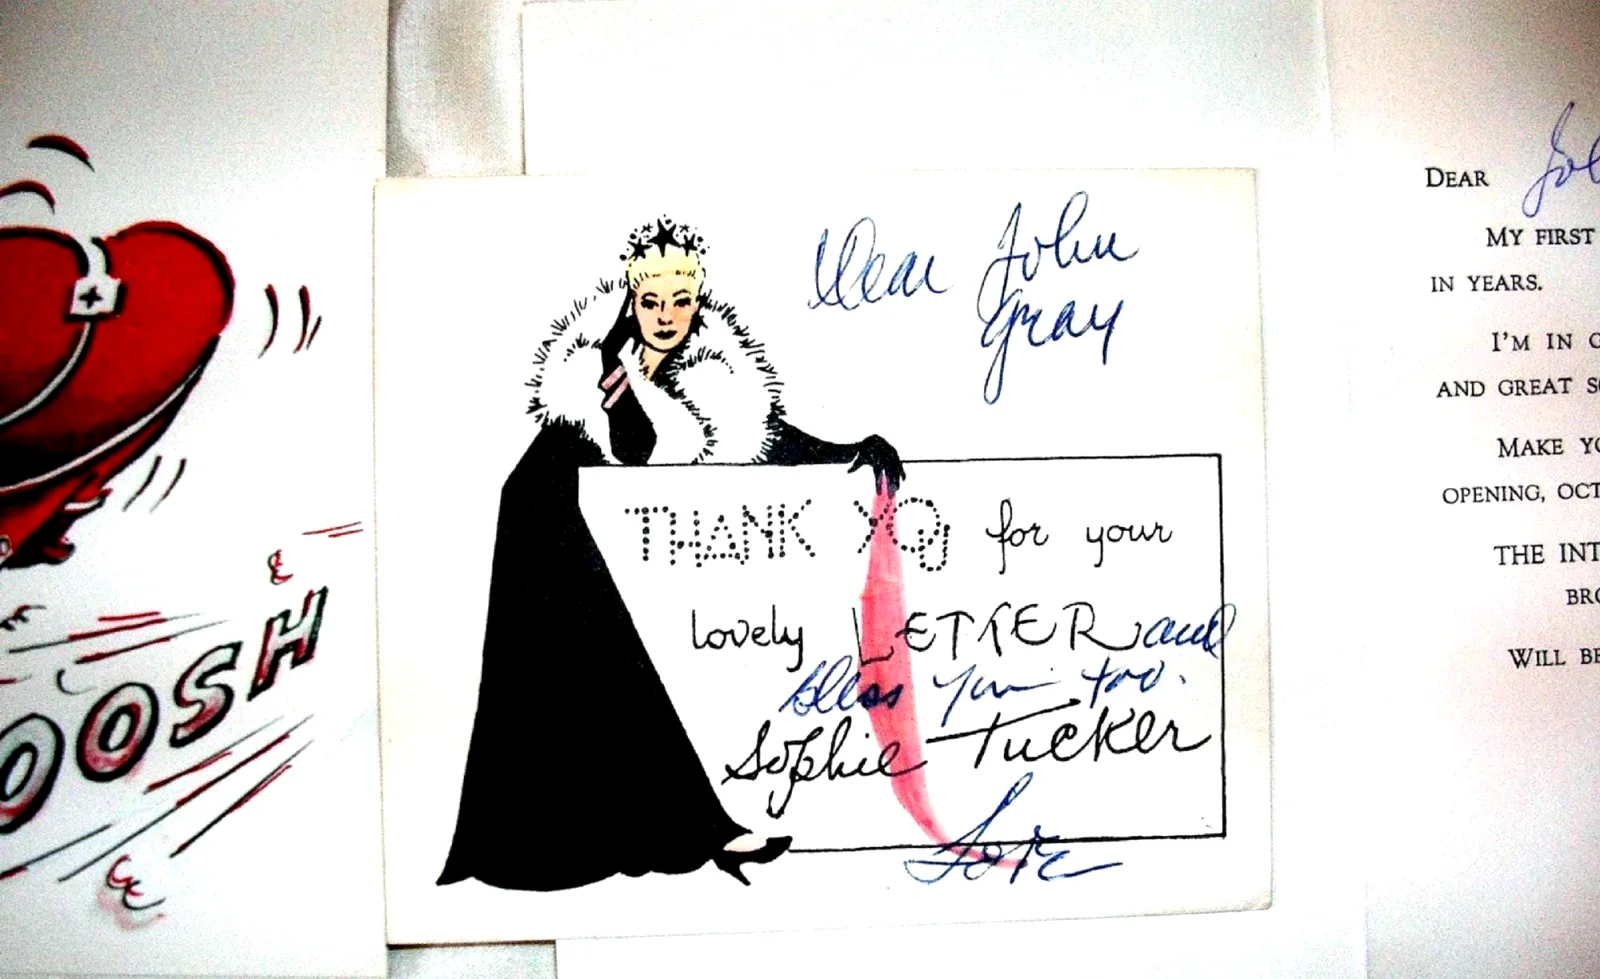 OOSH
Dear John
Gray
THANK YOU for your
lovely LETTER and
bless you too.
Sophie Tucker
DEAR
MY FIRST
IN YEARS.
I'M IN
AND GREAT
MAKE
OPENING, OCT
THE INT
BRO
WILL BE